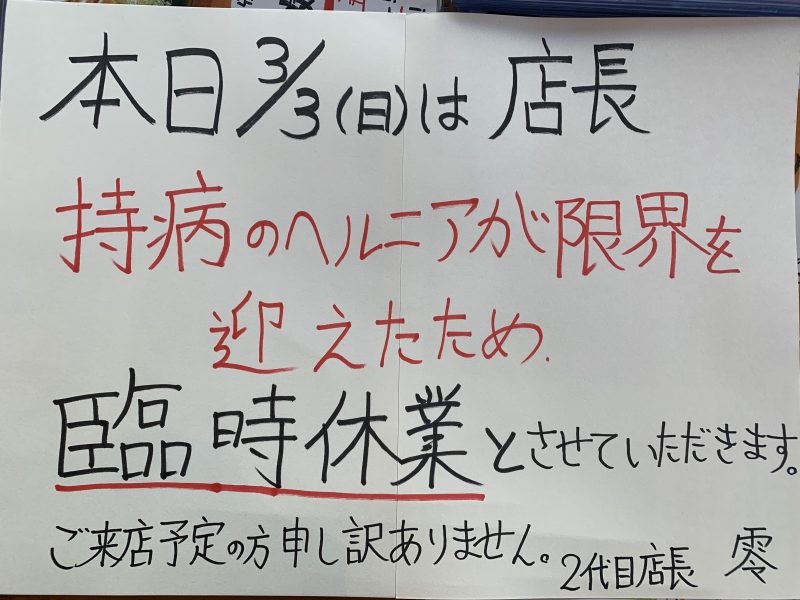 本日3/3(日)は店長
持病のヘルニアが限界を
迎えたため.
臨時休業とさせていただきます。
ご来店予定の方申し訳ありません。
2代目店長 零